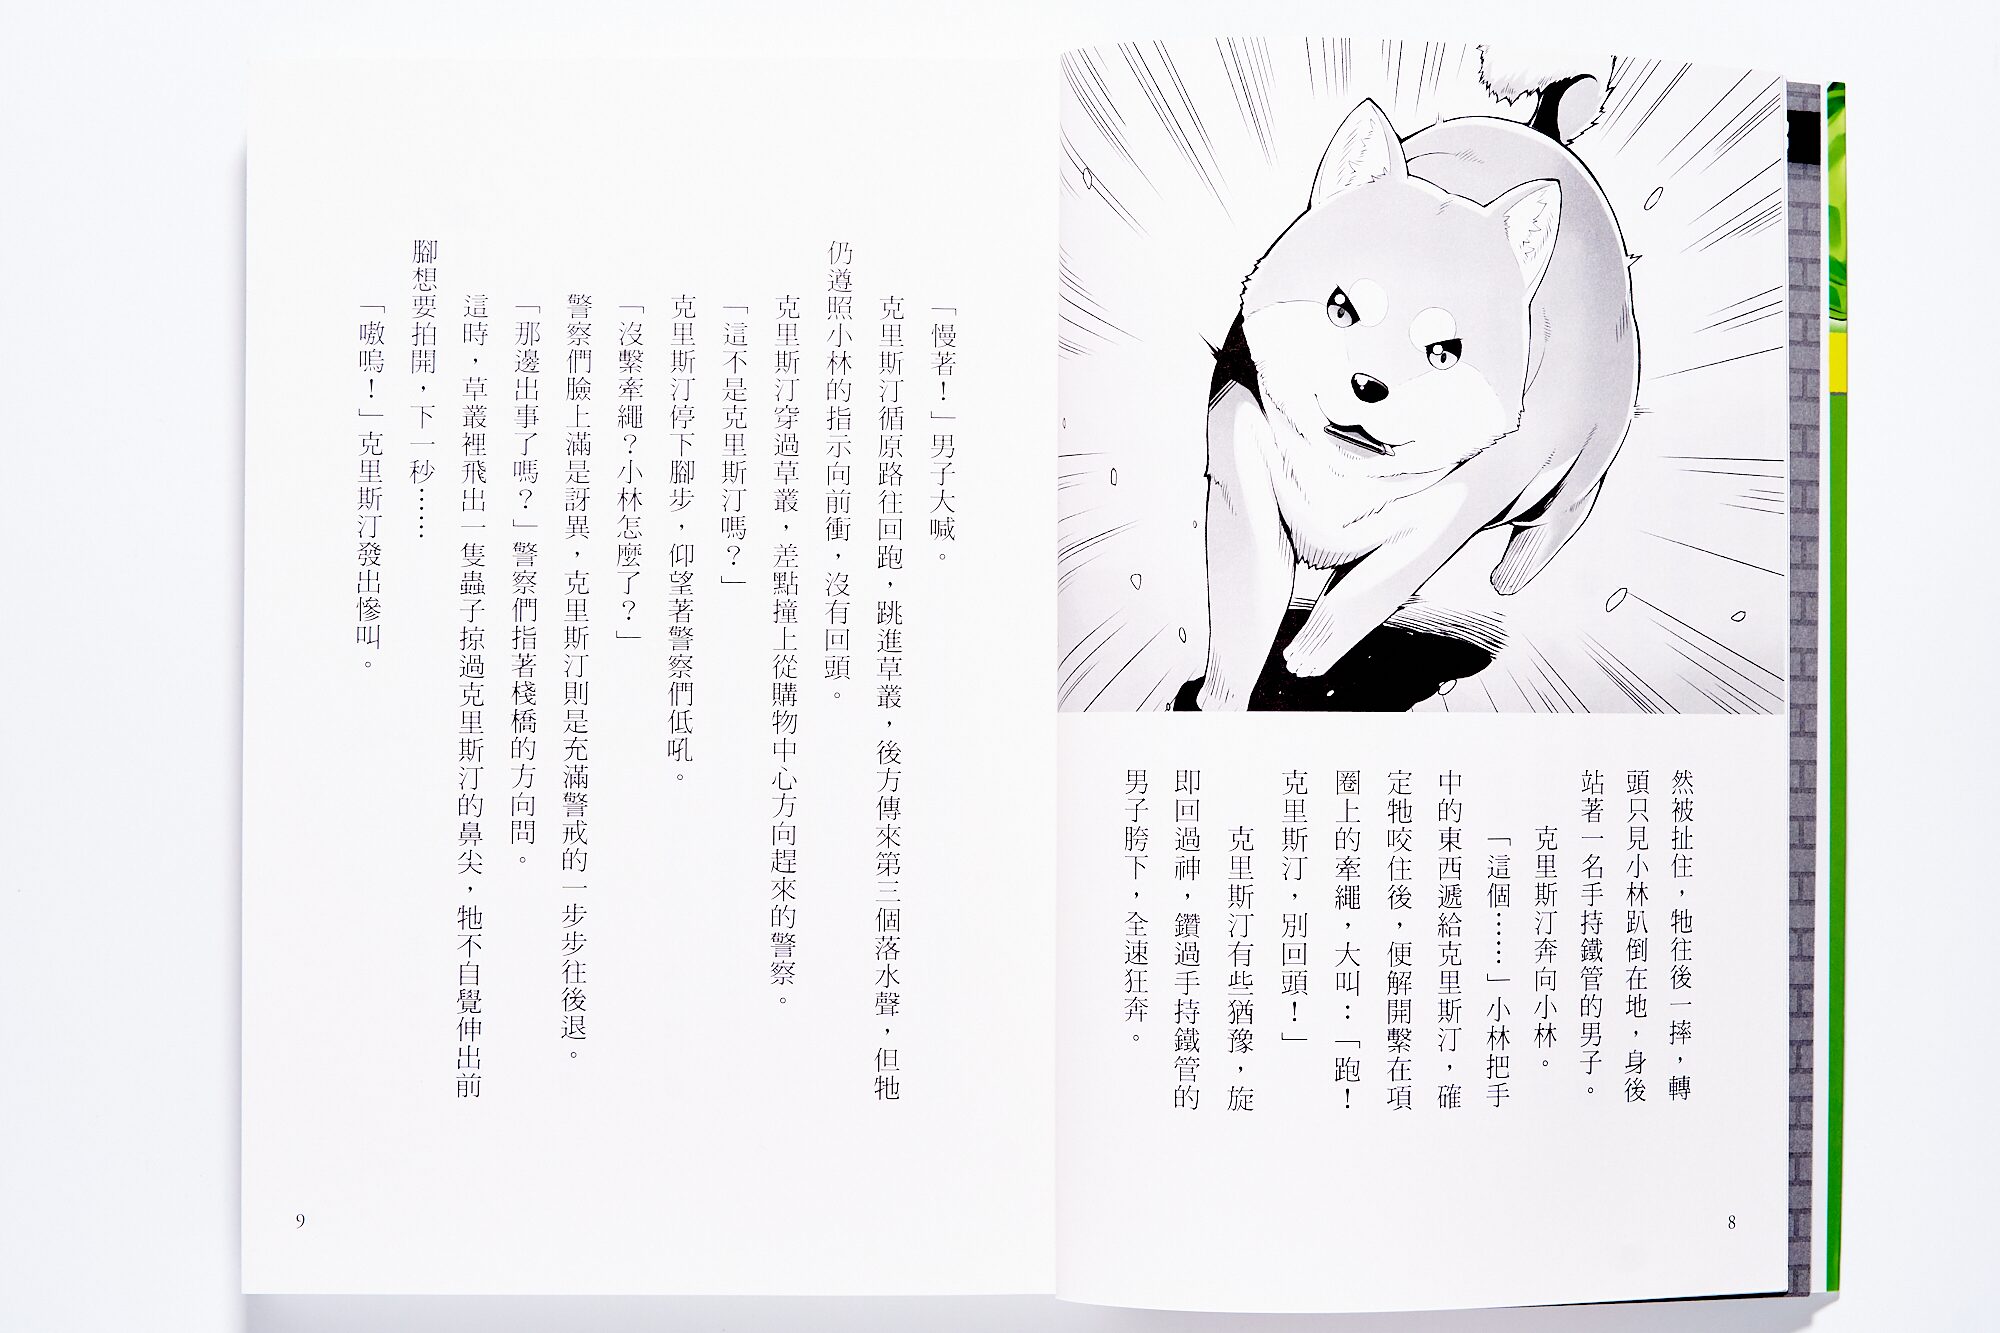 然被扯住，牠往後一摔，轉
頭只見小林趴倒在地，身後
站著一名手持鐵管的男子。
克里斯汀奔向小林。
「這個……」小林把手
中的東西遞給克里斯汀，確
定牠咬住後，便解開繫在項
圈上的牽繩，大叫：「跑！
克里斯汀，別回頭！」
克里斯汀有些猶豫，旋
即回過神，鑽過手持鐵管的
男子胯下，全速狂奔。
8
「慢著！」男子大喊。
克里斯汀循原路往回跑，跳進草叢，後方傳來第三個落水聲，但牠
仍遵照小林的指示向前衝，沒有回頭。
克里斯汀穿過草叢，差點撞上從購物中心方向趕來的警察。
「這不是克里斯汀嗎？」
克里斯汀停下腳步，仰望著警察們低吼。
「沒繫牽繩？小林怎麼了？」
警察們臉上滿是訝異，克里斯汀則是充滿警戒的一步步往後退。
「那邊出事了嗎？」警察們指著棧橋的方向問。
這時，草叢裡飛出一隻蟲子掠過克里斯汀的鼻尖，牠不自覺伸出前
腳想要拍開，下一秒……
「嗷嗚！」克里斯汀發出慘叫。
9